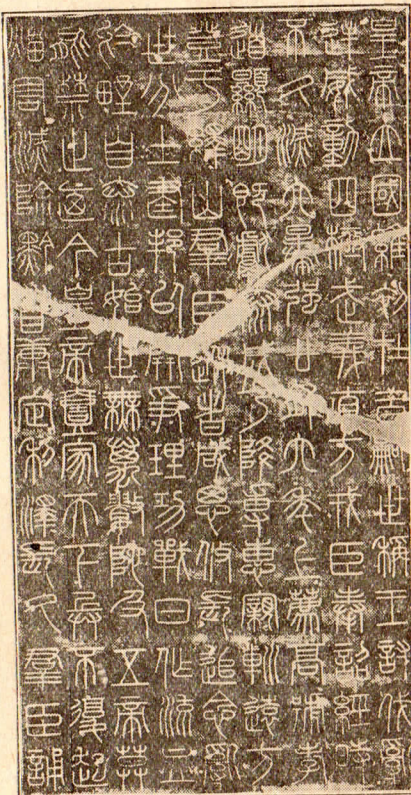 皇帝立國維初在昔嗣世稱王討伐亂
逆威動四極武義直方戎臣奉詔經時
不久滅六暴強廿有六年上薦高號孝
道顯明既獻泰成乃降專惠親巡遠方
登于繹山羣臣從者咸思攸長追念亂
世分土建邦以開爭理功戰日作流血
於野自泰古始世無萬數陀及五帝莫
能禁止廼今皇帝壹家天下兵不復起
災害滅除黔首康定利澤長久羣臣誦